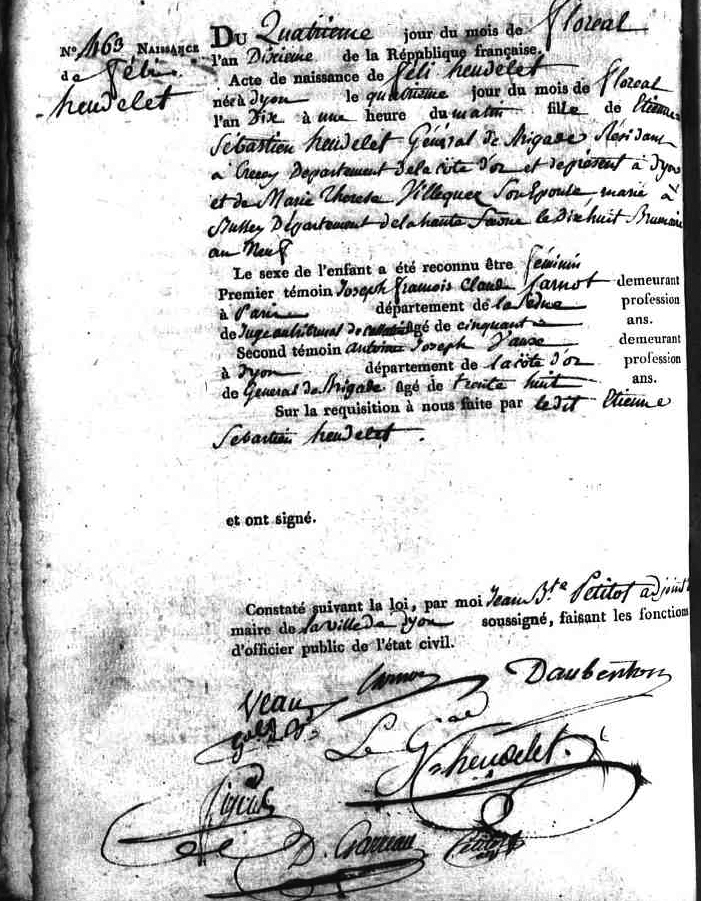 N° 463 NAISSANCE
de féli
heudelet
DU Quatrieme jour du mois de floreal
l'an Dixieme de la République française.
Acte de naissance de féli heudelet
né à dyon le quatrieme jour du mois de floreal
l'an Dix à une heure du matin fille de Etienne
Sébastien heudelet Général de Brigade Résidant
à Département de la côte d'or et de présent à dyon
et de Marie Therese Villequez Son Epouse marié à
Département de la haute Saone le Dix huit Brumaire
an Neuf
Le sexe de l'enfant a été reconnu être féminin
Premier témoin Joseph francois Claude Carnot demeurant
à Paris département de la Seine profession
de Juge au tribunal de âgé de cinquante ans.
Second témoin antoine Joseph Veaux demeurant
à dyon département de la côte d'or profession
de General de Brigade âgé de trente huit ans.
Sur la requisition à nous faite par ledit Etienne
Sébastien heudelet.
et ont signé.
Constaté suivant la loi, par moi Jean B.te Petitot adjoint
maire de la ville de dyon soussigné, faisant les fonctions
d'officier public de l'état civil.
Veaux Carnot Daubenton
gal de B.
Le Gral
heudelet.
Petitot